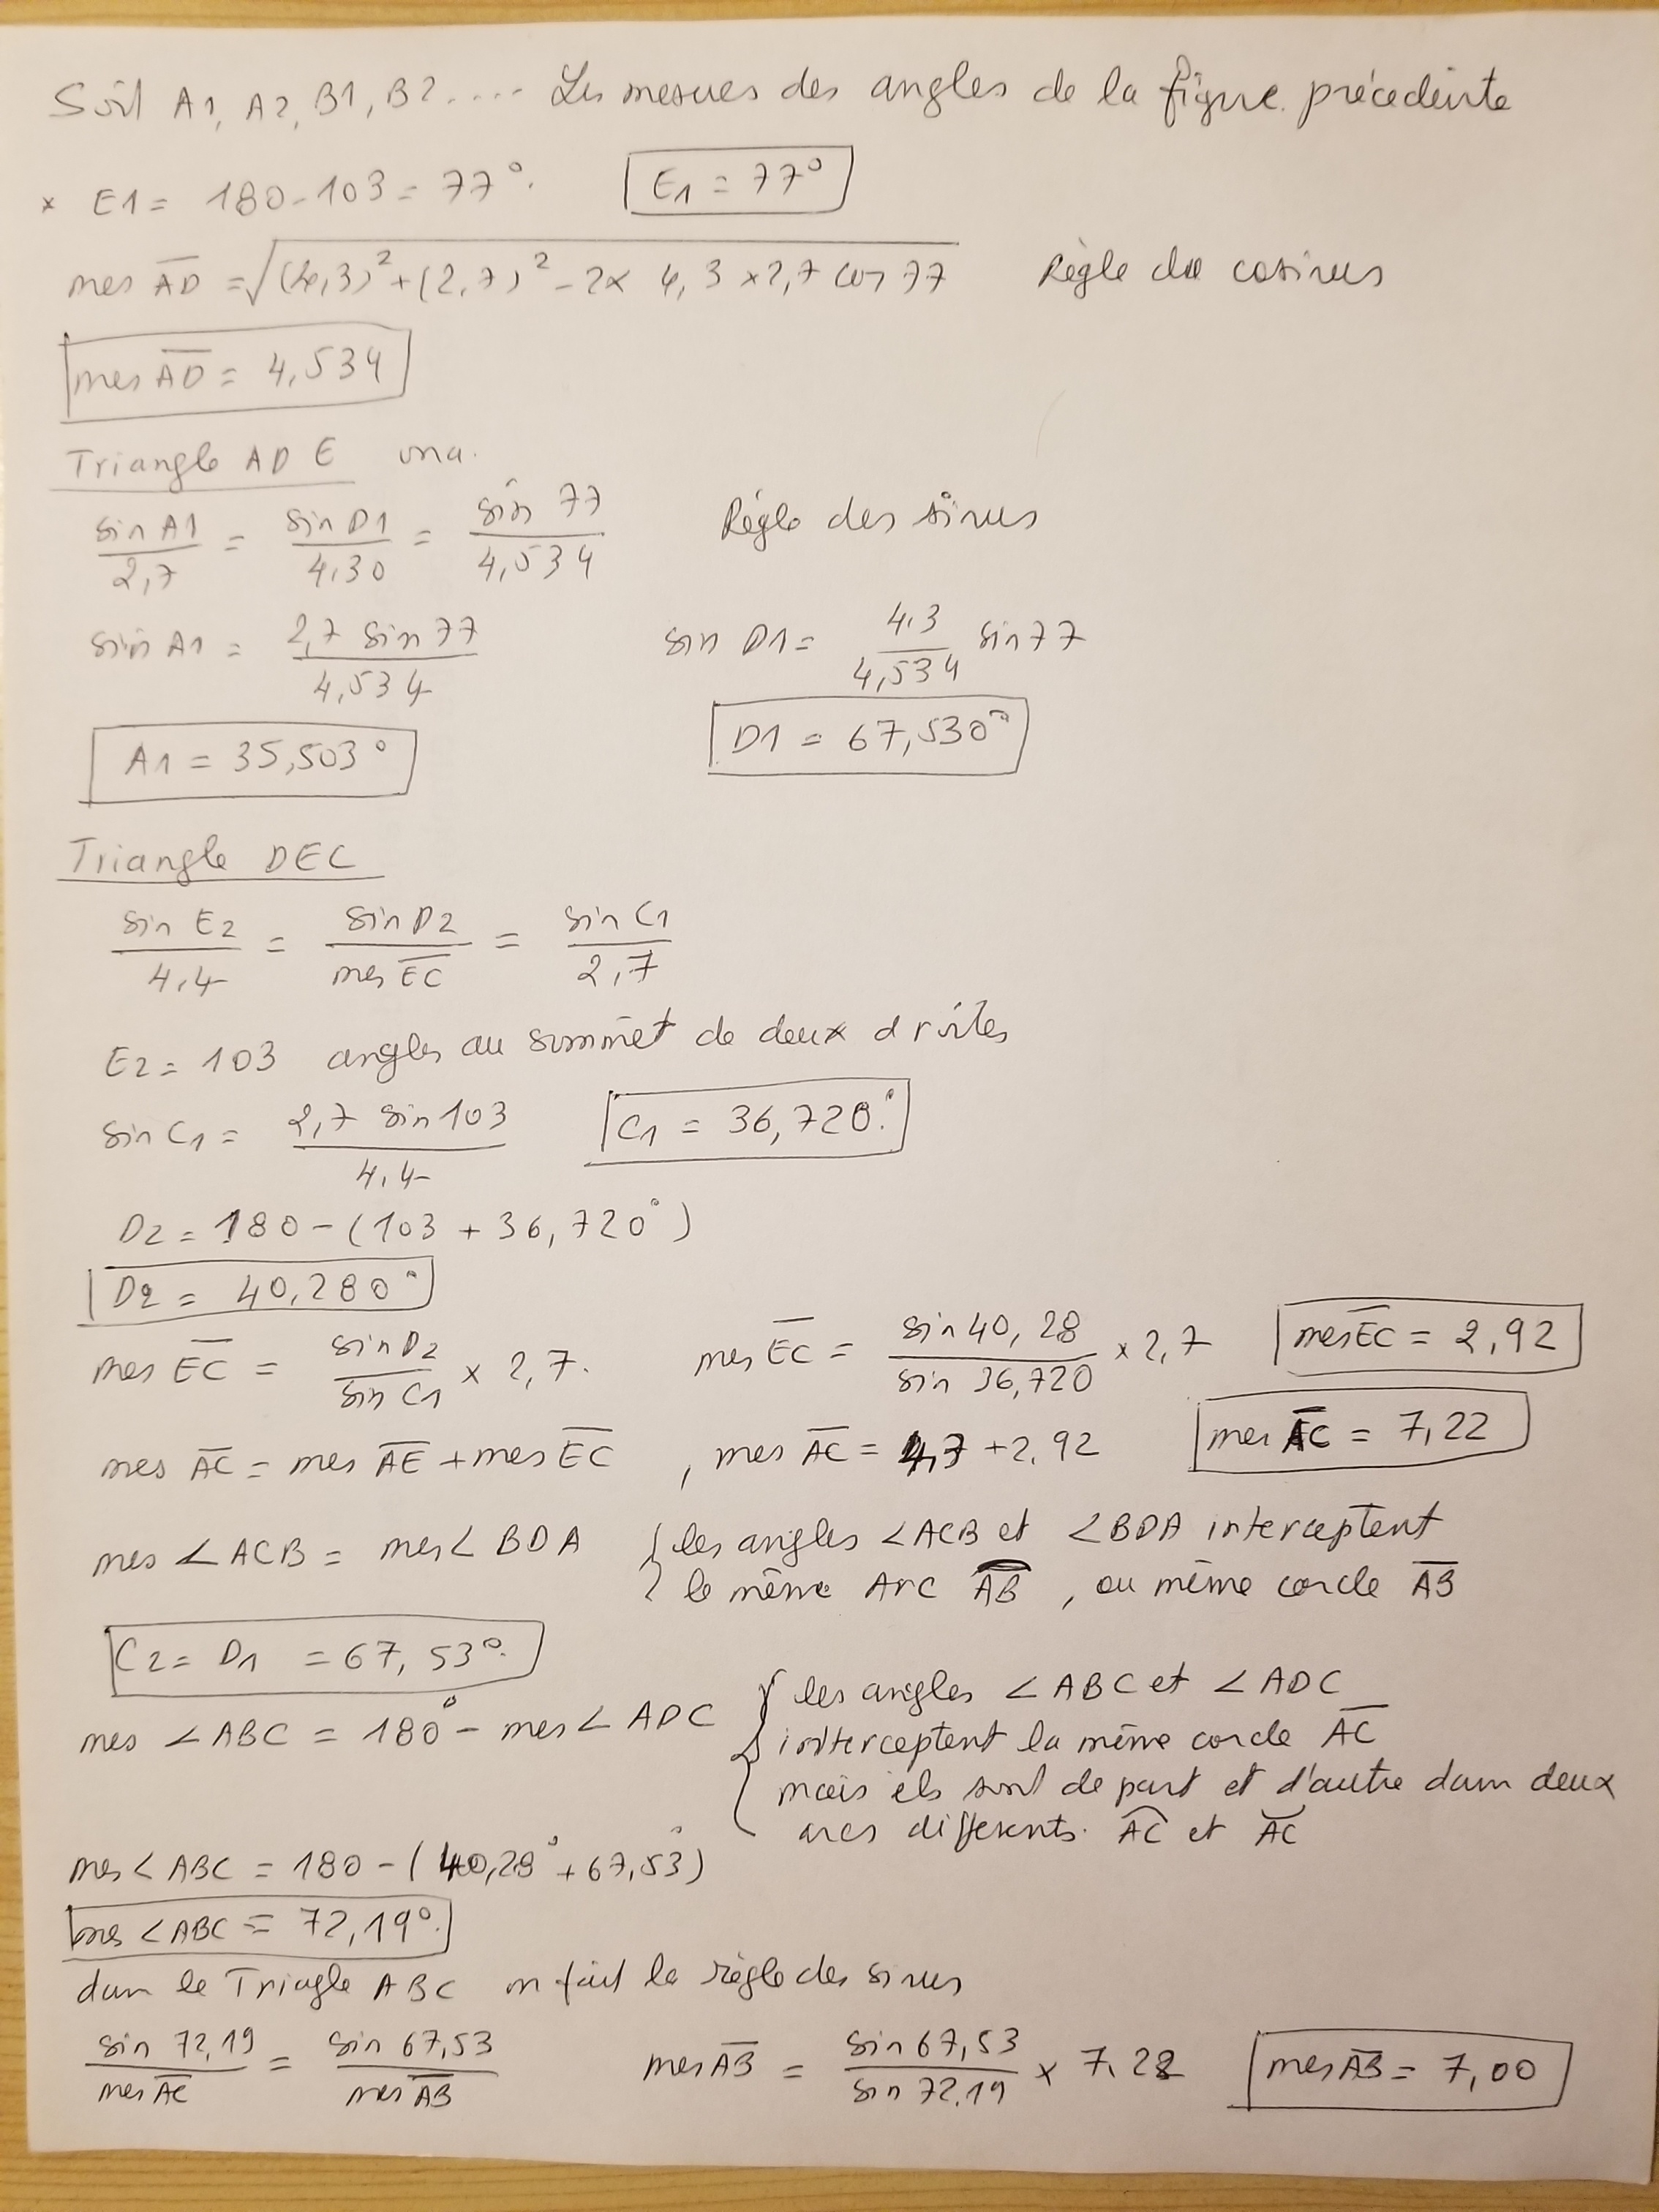 Soit A1, A2, B1, B2 .... Les mesures des angles de la figure précédente
× E1 = 180 - 103 = 77°. E1 = 77°
mes AD = √(4,3)² + (2,7)² - 2 × 4,3 × 2,7 cos 77 Règle du cosinus
mes AD = 4,534
Triangle ADE on a.
sin A1 / 2,7 = sin D1 / 4,30 = sin 77 / 4,534 Règle des sinus
sin A1 = 2,7 sin 77 / 4,534 sin D1 = 4,3 / 4,534 sin 77
A1 = 35,503° D1 = 67,530°
Triangle DEC
sin E2 / 4,4 = sin D2 / mes EC = sin C1 / 2,7
E2 = 103 angles au sommet de deux droites
sin C1 = 2,7 sin 103 / 4,4 C1 = 36,720°.
D2 = 180 - (103 + 36,720°)
D2 = 40,280°
mes EC = sin D2 / sin C1 × 2,7. mes EC = sin 40,28 / sin 36,720 × 2,7 mes EC = 2,92
mes AC = mes AE + mes EC , mes AC = 4,3 + 2,92 mes AC = 7,22
mes ∠ACB = mes ∠BDA { les angles ∠ACB et ∠BDA interceptent
le même Arc AB , ou même corde AB
C2 = D1 = 67,53°.
mes ∠ABC = 180° - mes ∠ADC { les angles ∠ABC et ∠ADC
interceptent la même corde AC
mais ils sont de part et d'autre dans deux
arcs différents. AC et AC
mes ∠ABC = 180 - (40,28° + 67,53°)
mes ∠ABC = 72,19°.
dans le Triagle ABC on fait la règle des sinus
sin 72,19 / mes AC = sin 67,53 / mes AB mes AB = sin 67,53 / sin 72,19 × 7,22 mes AB = 7,00